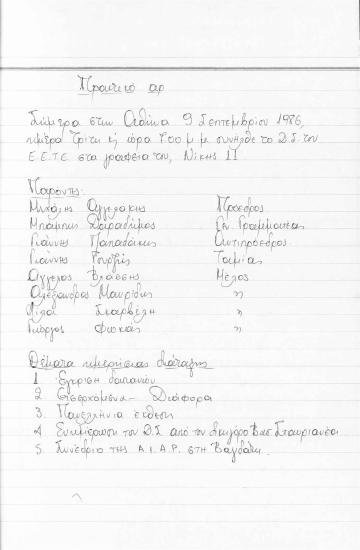 Πρακτικό αρ
Σήμερα στην Αθήνα 9 Σεπτεμβρίου 1986,
ημέρα Τρίτη κ ώρα 7.00 μ.μ συνήλθε το Δ.Σ του
Ε.Ε.Τ.Ε στα γραφεία του, Νίκης 11
Παρόντες:
Μιχάλης Αγγελάκης Πρόεδρος
Μπάμπης Δαραδήμος Γεν. Γραμματέας
Γιάννης Παπαδάκης Αντιπρόεδρος
Γιάννης Γουρζής Ταμίας
Άγγελος Βλάσσης Μέλος
Αλέξανδρος Μαυρίδης "
Λιλα Σκαρβέλη "
Γιώργος Φωκάς "
Θέματα ημερήσιας διάταξης
1 Έγκριση δαπανών
2 Εισερχόμενα - Διάφορα
3. Πανελλήνια έκθεση
4 Ενημέρωση του Δ.Σ από τον δικηγόρο Βασ. Σταυριανέα
5. Συνέδριο της A.I.A.P. στη Βαγδάτη.